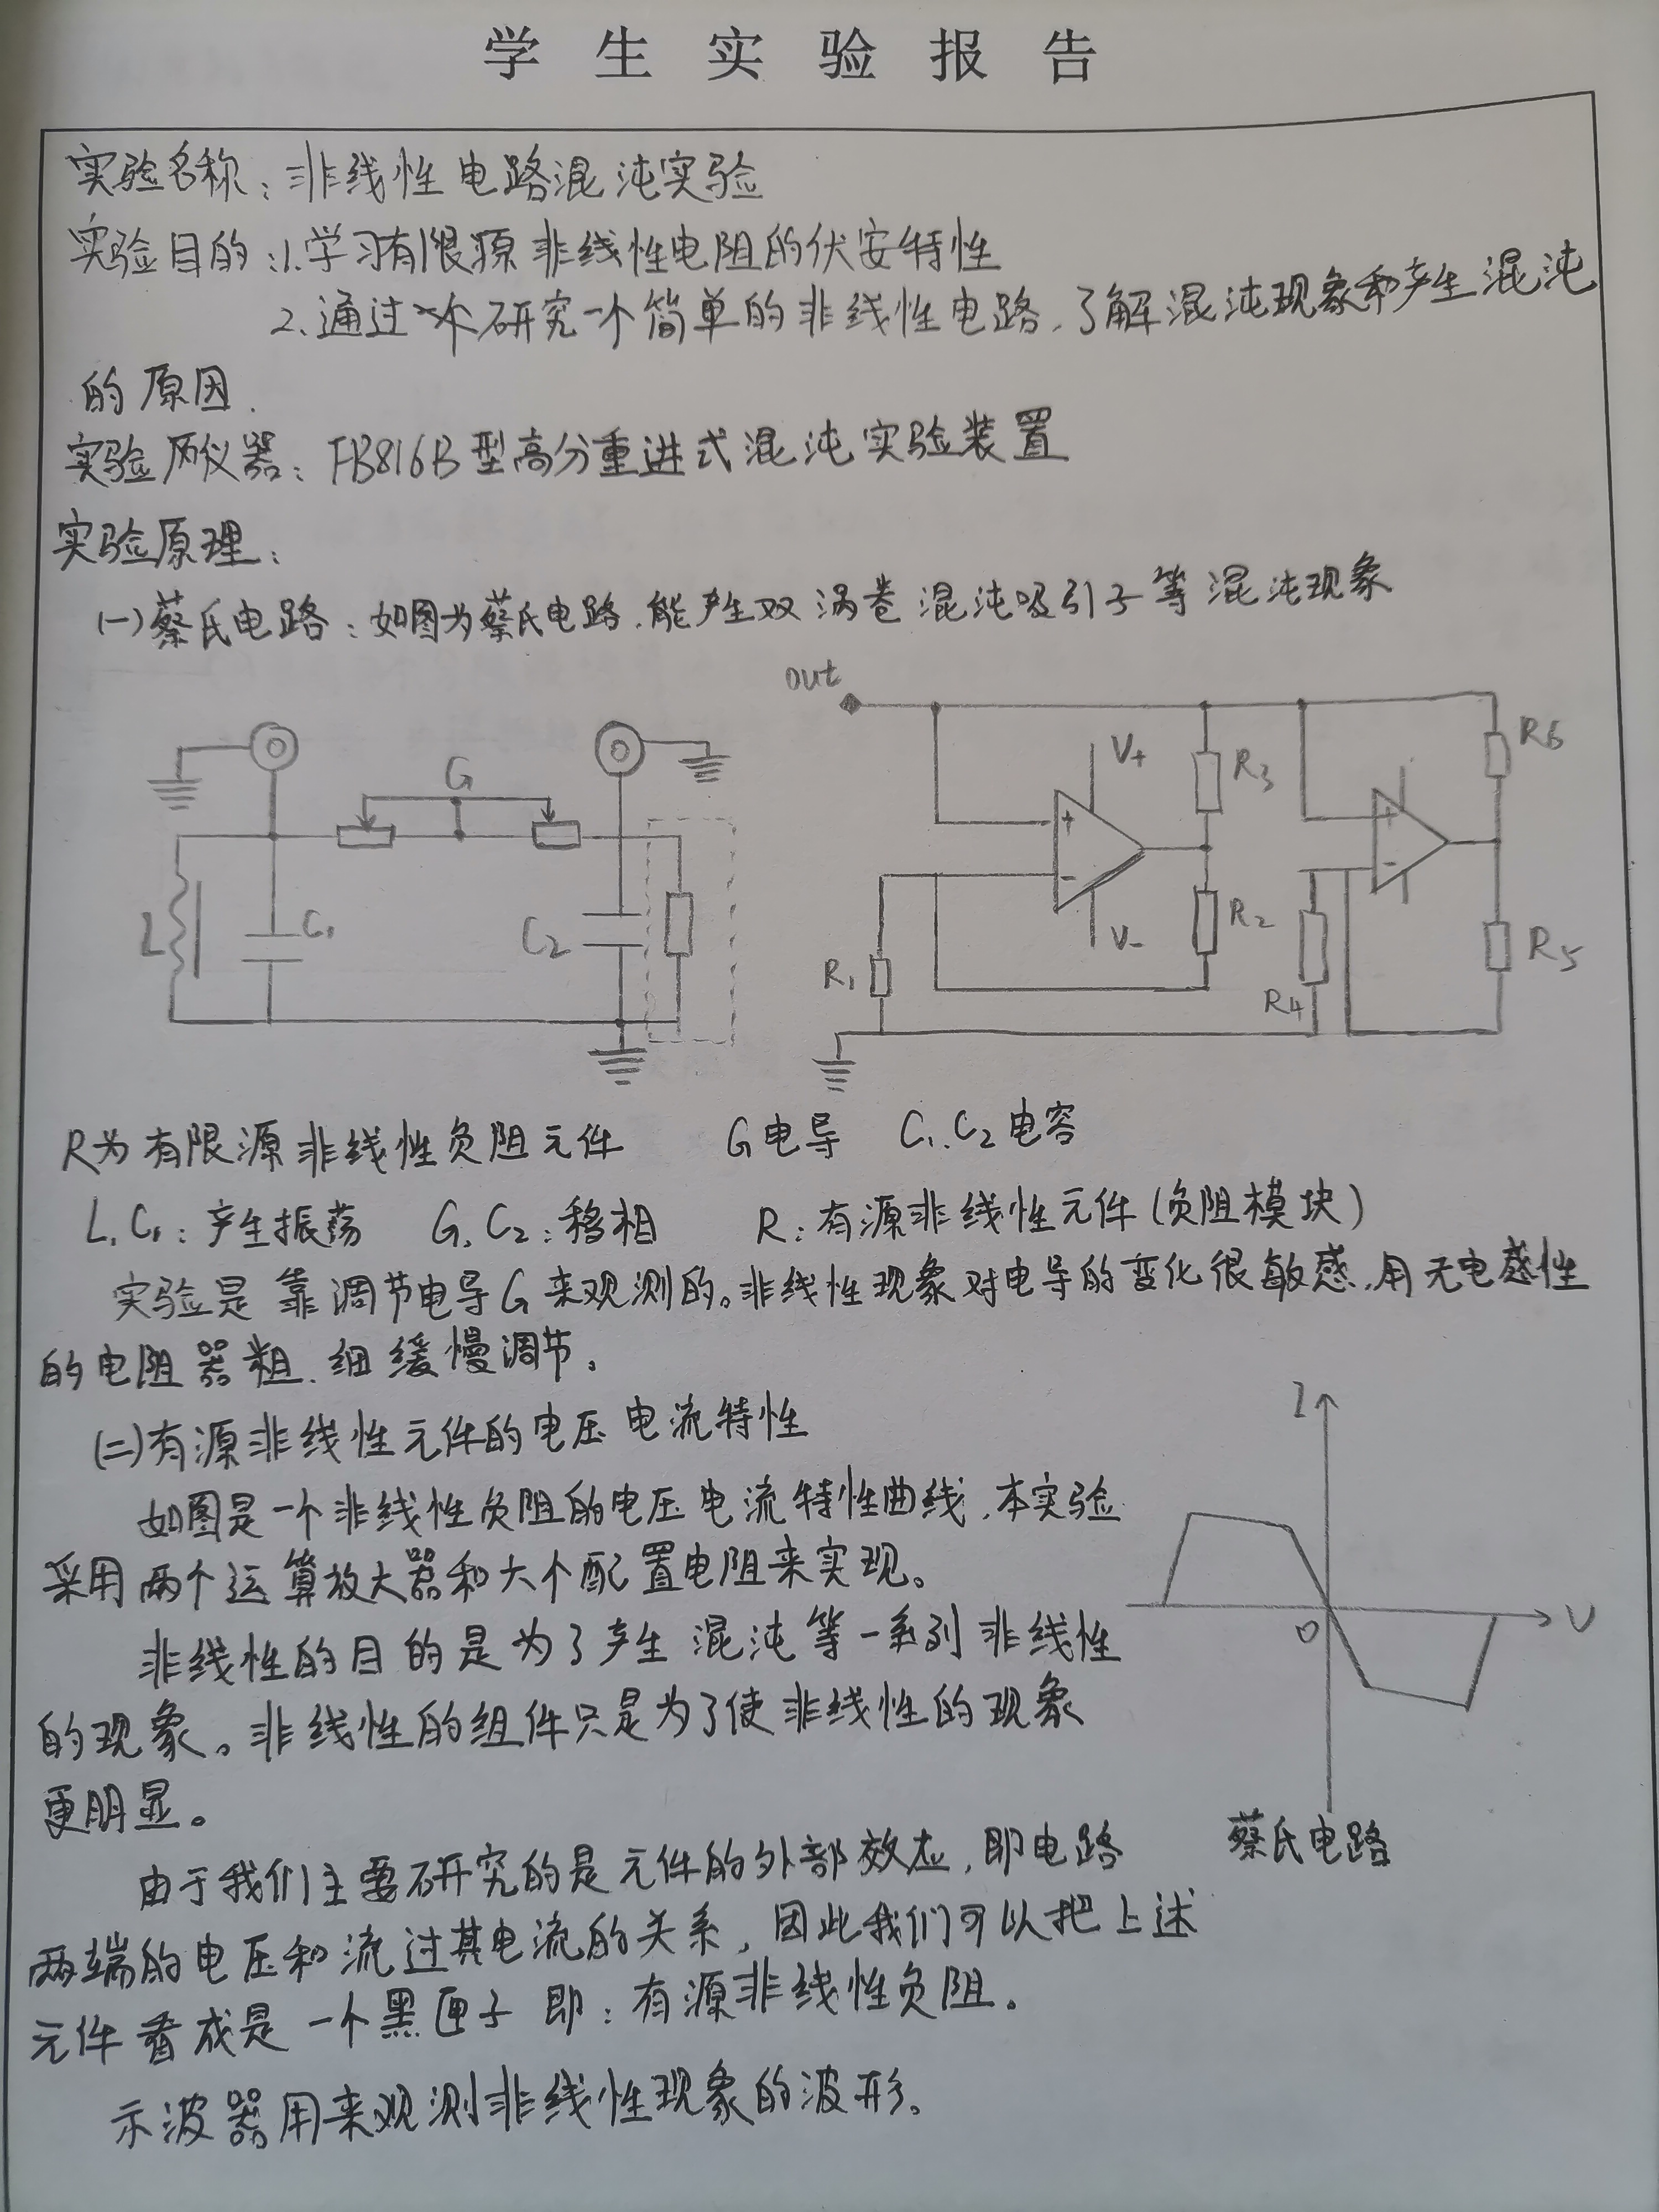 学生实验报告
实验名称：非线性电路混沌实验
实验目的：1.学习有限源非线性电阻的伏安特性
2.通过研究一个简单的非线性电路，了解混沌现象和产生混沌
的原因.
实验仪器：FB816B型高分重进式混沌实验装置
实验原理：
(一)蔡氏电路：如图为蔡氏电路.能产生双涡卷混沌吸引子等混沌现象
out
G
V+
R3
R6
+
-
+
-
L
C1
C2
V-
R2
R1
R4
R5
R为有限源非线性负阻元件 G电导 C1.C2电容
L,C1：产生振荡 G,C2：移相 R：有源非线性元件(负阻模块)
实验是靠调节电导G来观测的。非线性现象对电导的变化很敏感.用无电感性
的电阻器粗.细缓慢调节。
(二)有源非线性元件的电压电流特性
I
如图是一个非线性负阻的电压电流特性曲线.本实验
采用两个运算放大器和大个配置电阻来实现。
O
U
非线性的目的是为了产生混沌等一系列非线性
的现象。非线性的组件只是为了使非线性的现象
更明显。
蔡氏电路
由于我们主要研究的是元件的外部效应,即电路
两端的电压和流过其电流的关系，因此我们可以把上述
元件看成是一个黑匣子即：有源非线性负阻。
示波器用来观测非线性现象的波形。